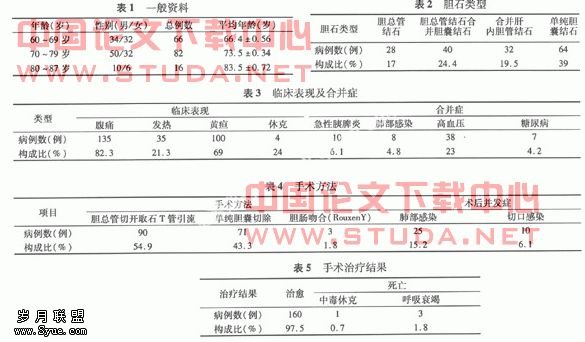 表1 一般资料
年龄(岁) 性别(男/女) 总例数 平均年龄(岁)
60~69岁 34/32 66 66.4±0.56
70~79岁 50/32 82 73.5±0.34
80~87岁 10/6 16 83.5±0.72
表2 胆石类型
胆石类型 胆总管结石 胆总管结石合并胆囊结石 合并肝内胆管结石 单纯胆囊结石
病例数(例) 28 40 32 64
构成比(%) 17 24.4 19.5 39
表3 临床表现及合并症
类型 临床表现 合并症
腹痛 发热 黄疸 休克 急性胰脾炎 肺部感染 高血压 糖尿病
病例数(例) 135 35 100 4 10 8 38 7
构成比(%) 82.3 21.3 69 24 6.1 4.8 23 4.2
表4 手术方法
项目 手术方法 术后并发症
胆总管切开取石T管引流 单纯胆囊切除 胆肠吻合(RouxenY) 肺部感染 切口感染
病例数(例) 90 71 3 25 10
构成比(%) 54.9 43.3 1.8 15.2 6.1
表5 手术治疗结果
治疗结果 治愈 死亡
中毒休克 呼吸衰竭
病例数(例) 160 1 3
构成比(%) 97.5 0.7 1.8
中国论文下载中心
WWW.STUDA.NET
中国论文下载中心
WWW.STUDA.NET
岁月联盟
www.Syue.com